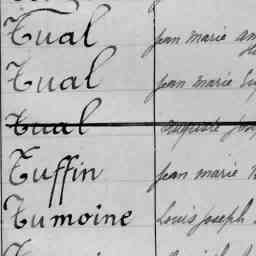 Tual Jean marie
Tual Jean marie
Tual Auguste
Tuffin Jean marie
Tumoine Louis Joseph